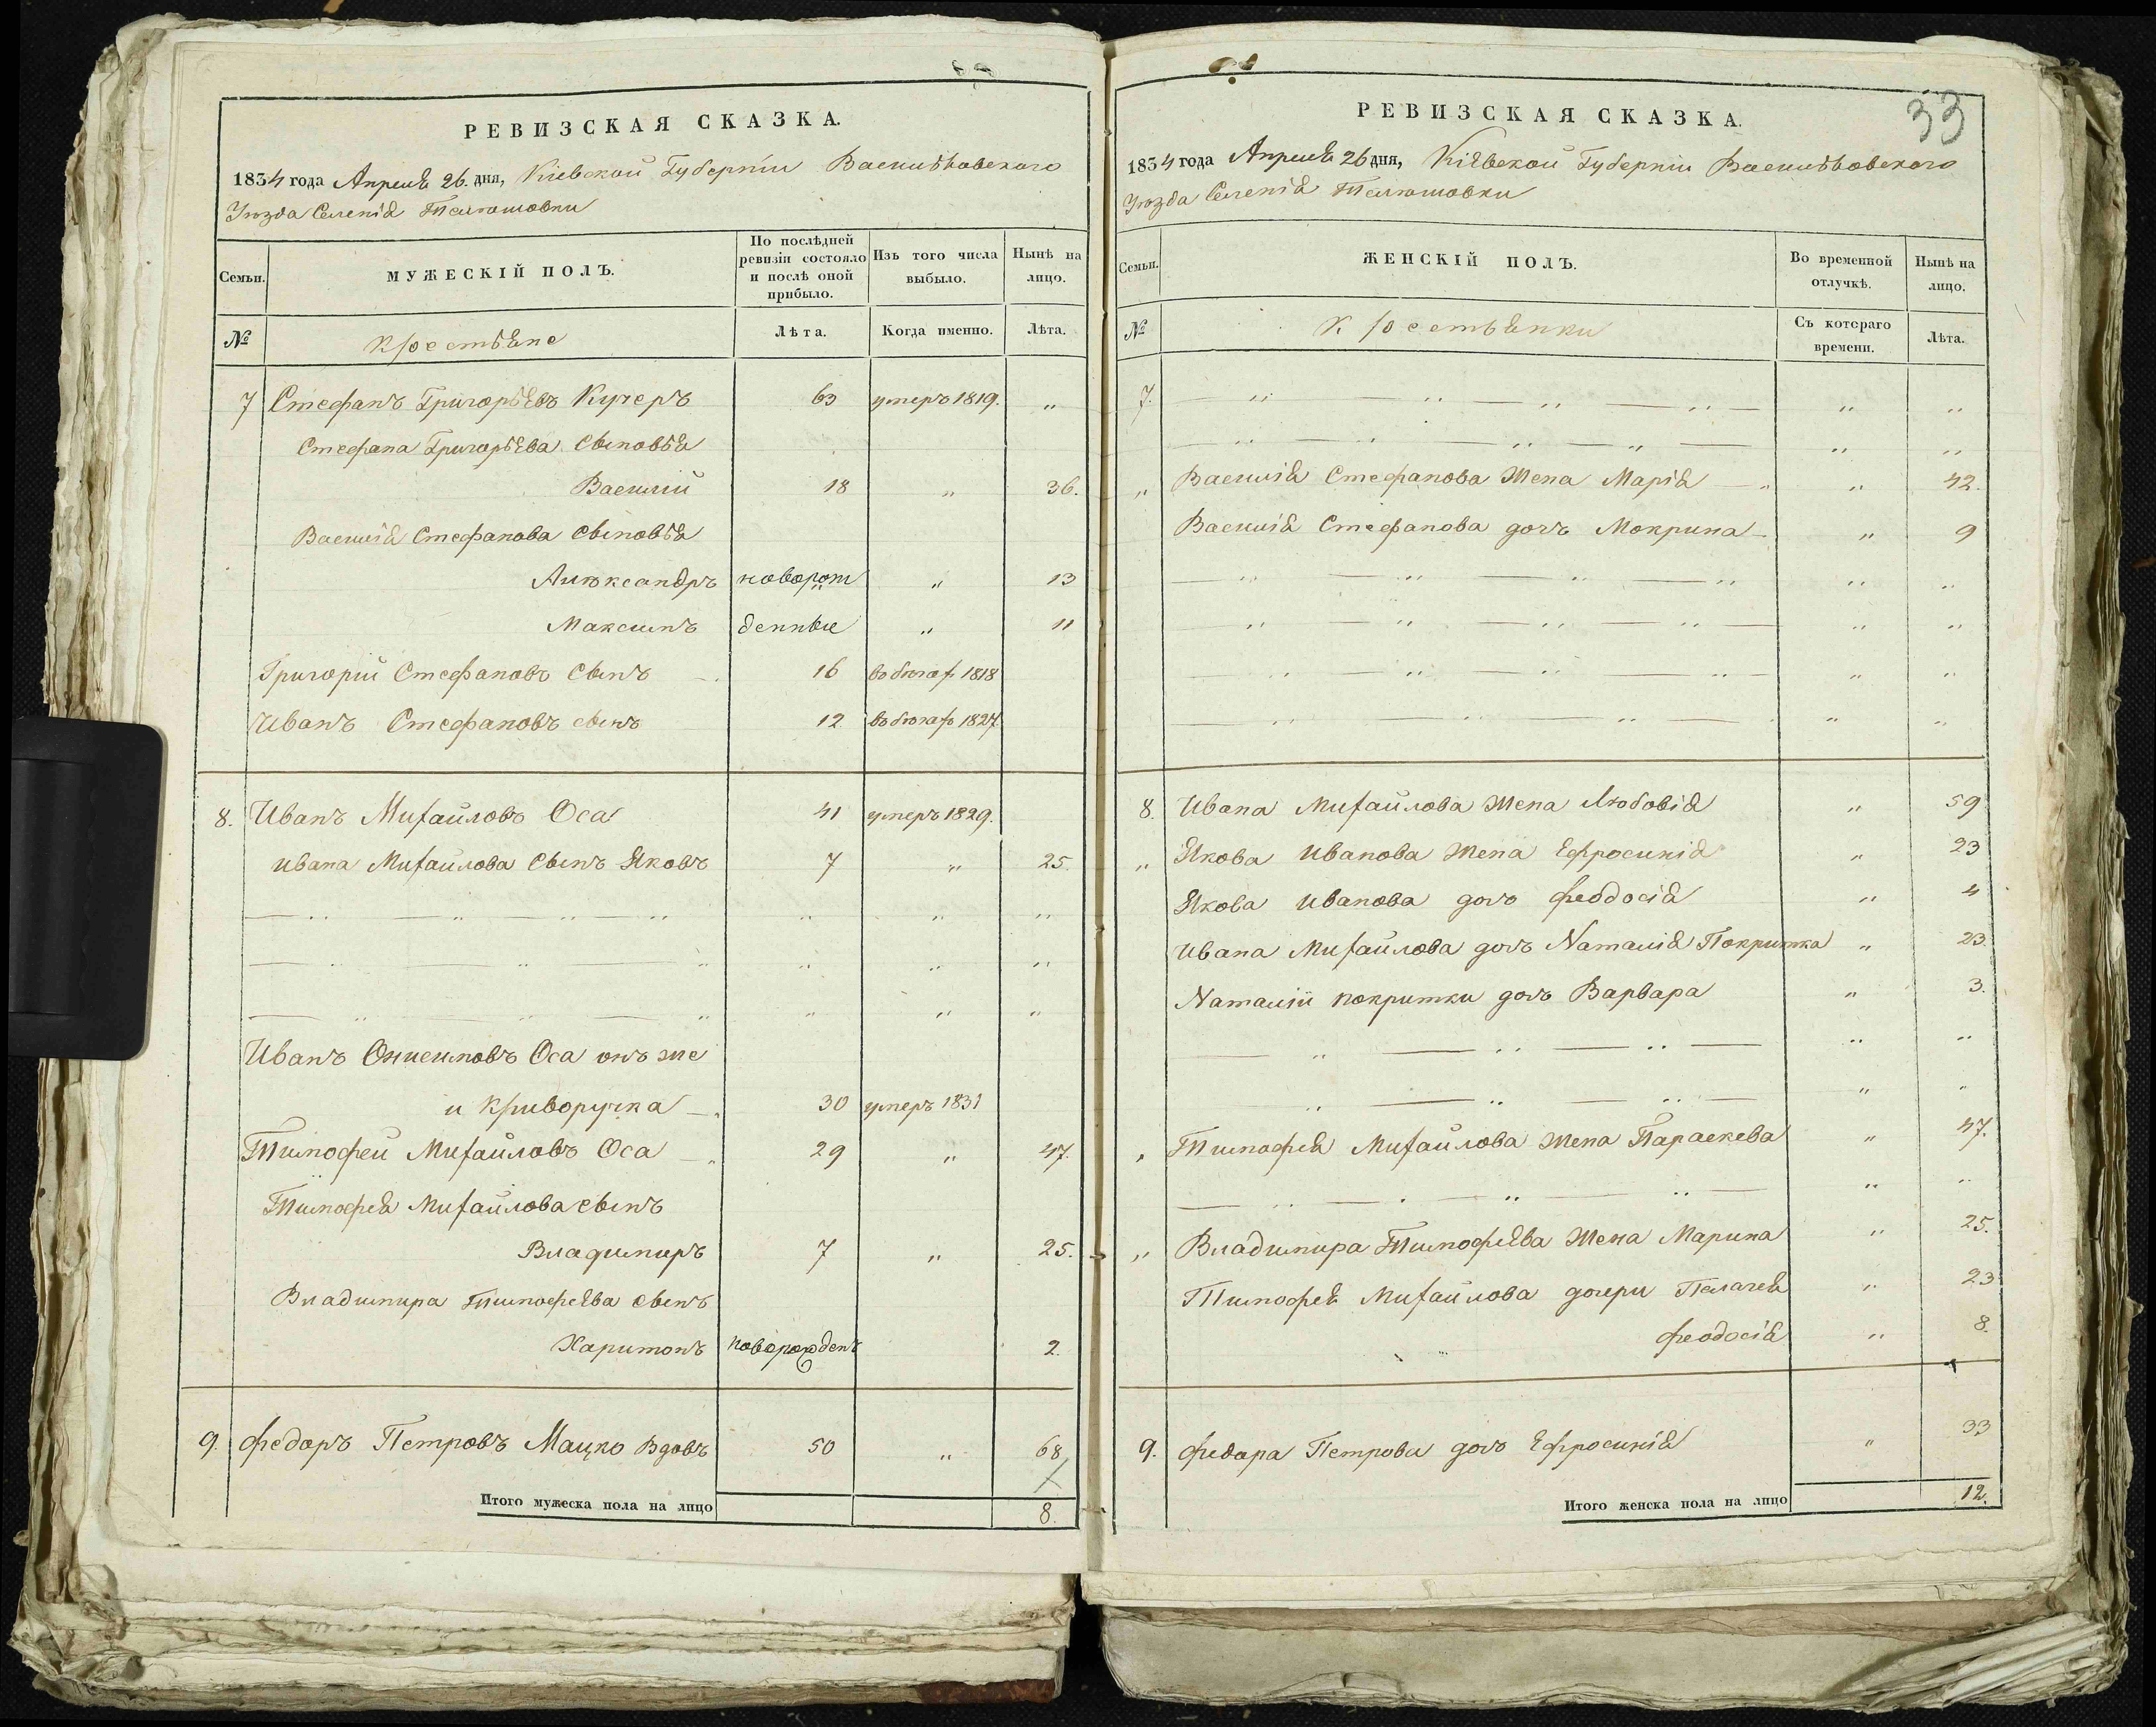 РЕВИЗСКАЯ СКАЗКА.
1834 года Апреля 26. дня, Кіевской Губерніи Васильковского
Уюзда Селенія Телюшовки
Семьи.
МУЖЕСКІЙ ПОЛЪ.
По послѣдней ревизіи состояло и послѣ оной прибыло.
Изъ того числа выбыло.
Нынѣ на лицо.
№
Крестьяне
Лѣта.
Когда именно.
Лѣта.
7 Стефанъ Григорьевъ Кучеръ 63 умеръ 1819. „
Стефана Григорьева сыновья
Василий 18 „ 36.
Василія Стефанова сыновья
Алюксандръ новорож „ 13
Максимъ денные „ 11
Григорий Стефановъ сынъ 16 1818
Иванъ Стефановъ сынъ 12 1827.
8. Иванъ Михайловъ Оса 41 умеръ 1829.
Ивана Михайлова сынъ Яковъ 7 „ 25.
Иванъ Онисимовъ Оса онъ же
и Криворучка 30 умеръ 1831
Тимофей Михайловъ Оса 29 „ 47.
Тимофея Михайлова сынъ
Владимиръ 7 „ 25.
Владимира Тимофеева сынъ
Харитонъ новорожденъ 2.
9. Федоръ Петровъ Мацко вдовъ 50 „ 68
Итого мужеска пола на лицо 8.
33
РЕВИЗСКАЯ СКАЗКА.
1834 года Апреля 26 дня, Кіевской Губерніи Васильковского
Уюзда Селенія Телюшовки
Семьи.
ЖЕНСКІЙ ПОЛЪ.
Во временной отлучкѣ.
Нынѣ на лицо.
№
Крестьянки
Съ котораго времени.
Лѣта.
7.
„ Василія Стефанова жена Марія „ 42.
Василія Стефанова дочъ Мокрина „ 9
8. Ивана Михайлова жена Любовія „ 59
„ Якова Иванова жена Ефросинія „ 23
Якова Иванова дочъ Феодосія „ 4
Ивана Михайлова дочъ Наталія Покритка „ 23.
Наталіи покритки дочъ Варвара „ 3.
„ Тимофея Михайлова жена Параскева „ 47.
„ Владимира Тимофеева жена Марина „ 25.
Тимофея Михайлова дочери Пелагея „ 23
Феодосія „ 8.
9. Федора Петрова дочъ Ефросинія „ 33
Итого женска пола на лицо 12.